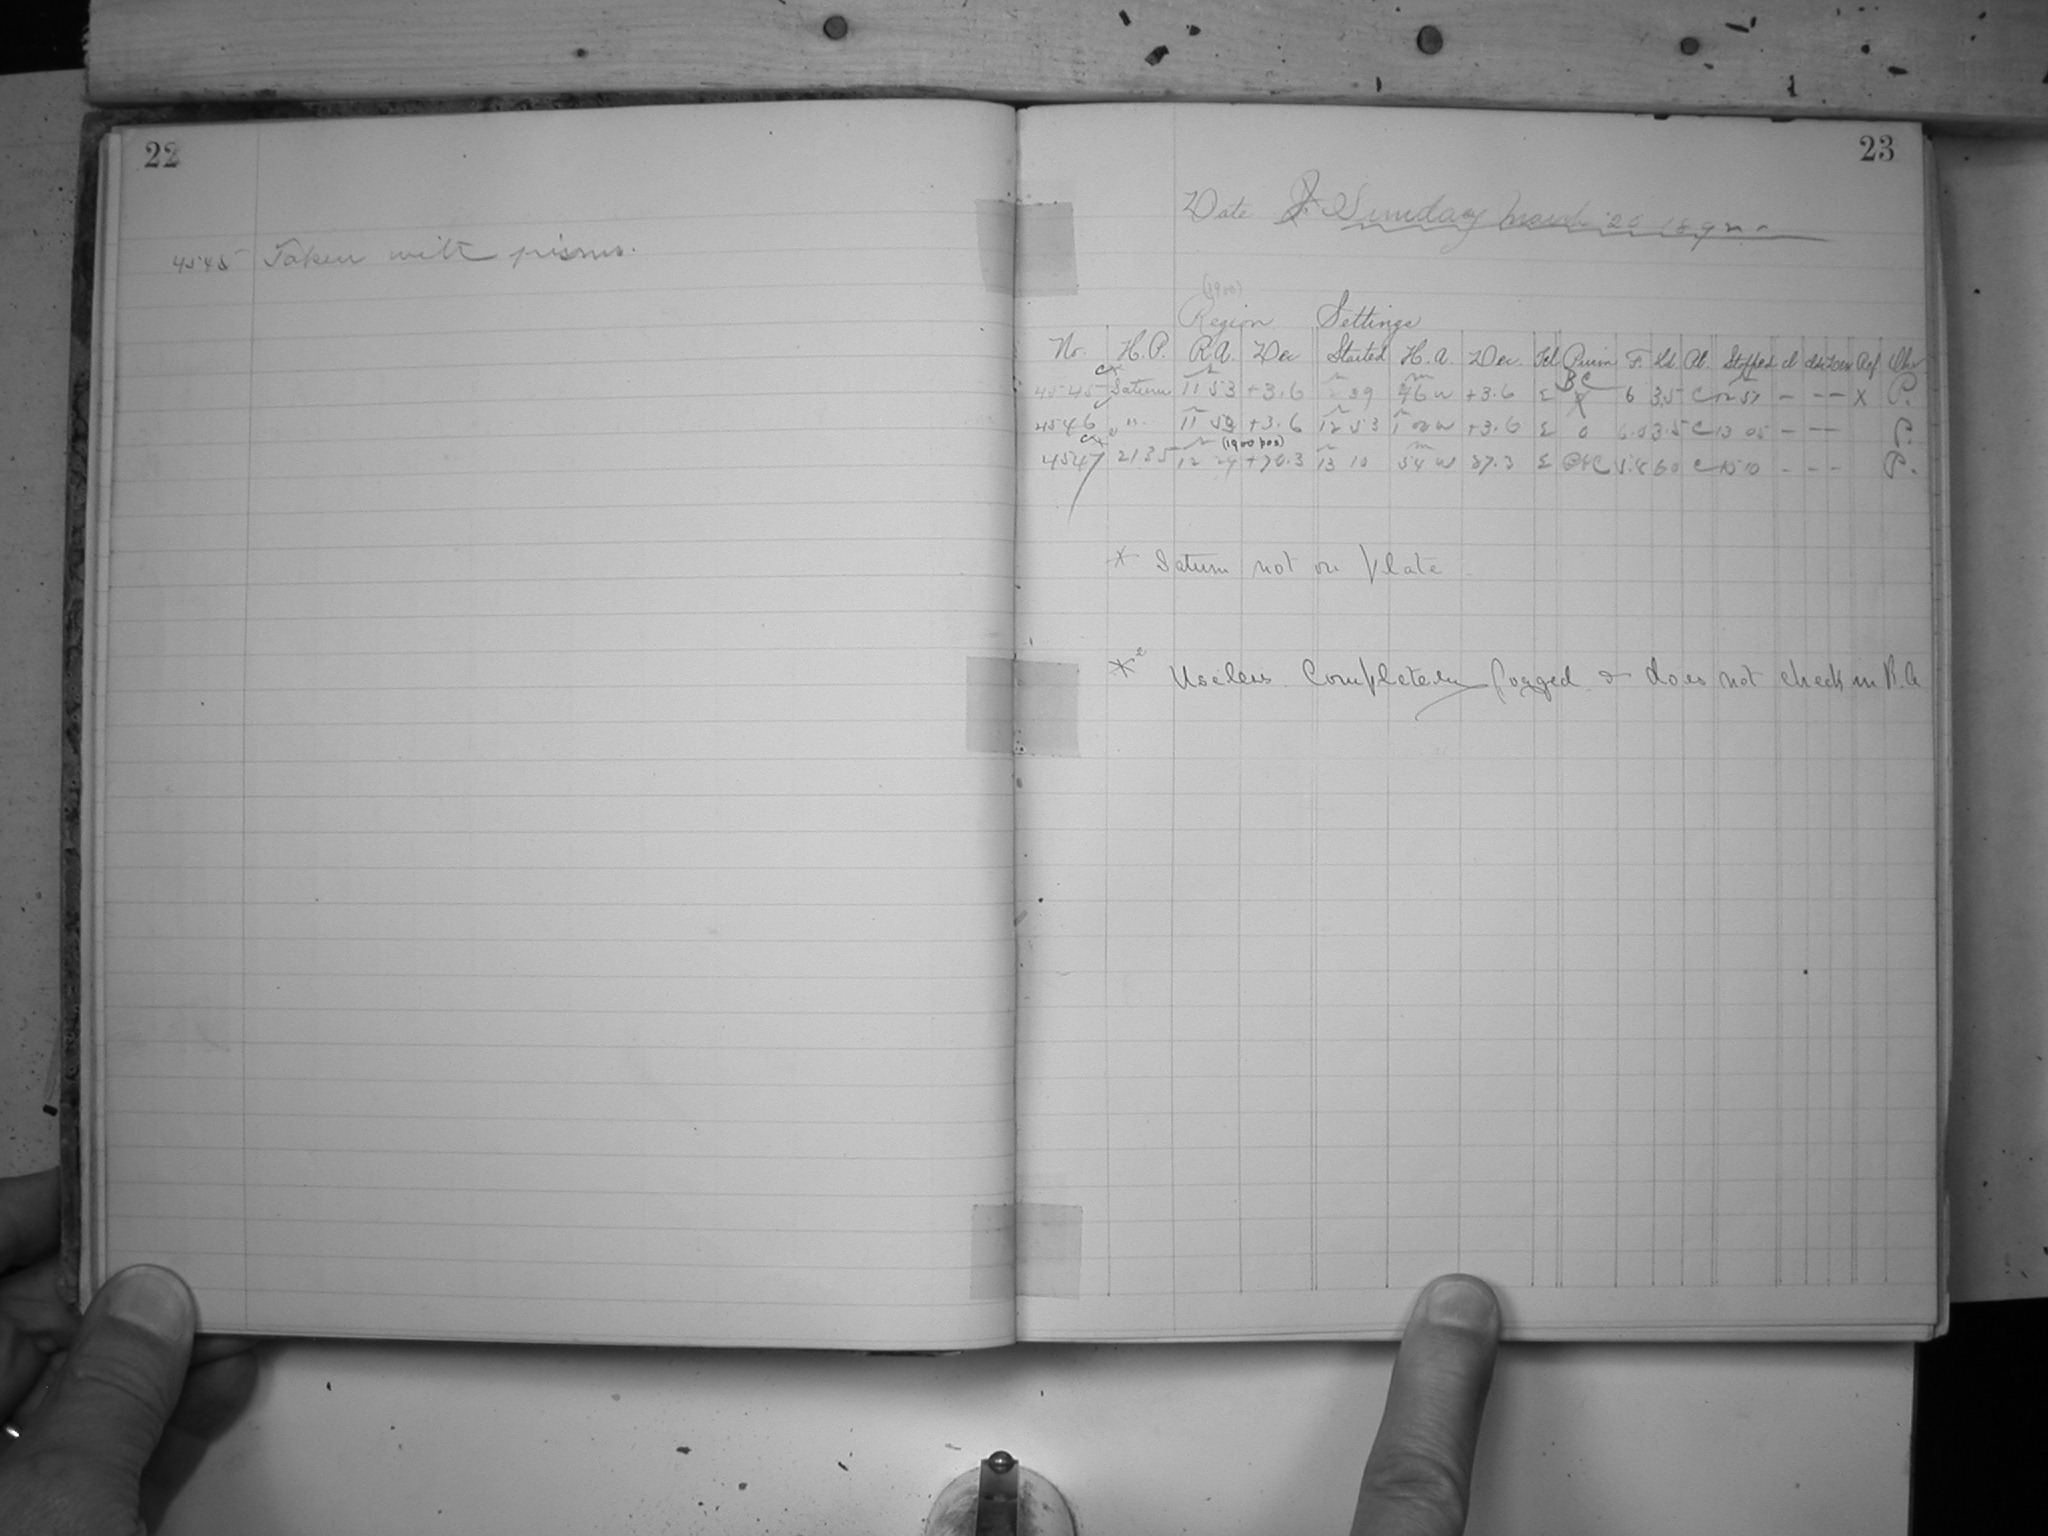 22
4545 Taken with prisms.
23
Date Sunday March 20 1892
(1900)
Region Settings
No. H.P. R.A. Dec Started H.A. Dec. Tel Prism F. Ld. Pl. Stopped Ref Obs
4545 Saturn 11 53 +3.6 39 46 w +3.6 Σ BC 6 3.5 C 12 57 - - - X P.
4546 " 11 53 +3.6 12 53 1 00 w +3.6 Σ 0 6.0 3.5 C 13 05 - - - C
(1900 pos)
4547 2135 12 29 +70.3 13 10 54 w 87.3 Σ 5.8 60 C 15 10 - - - P.
* Saturn not on plate
*2 Useless Completely fogged & does not check in R.A